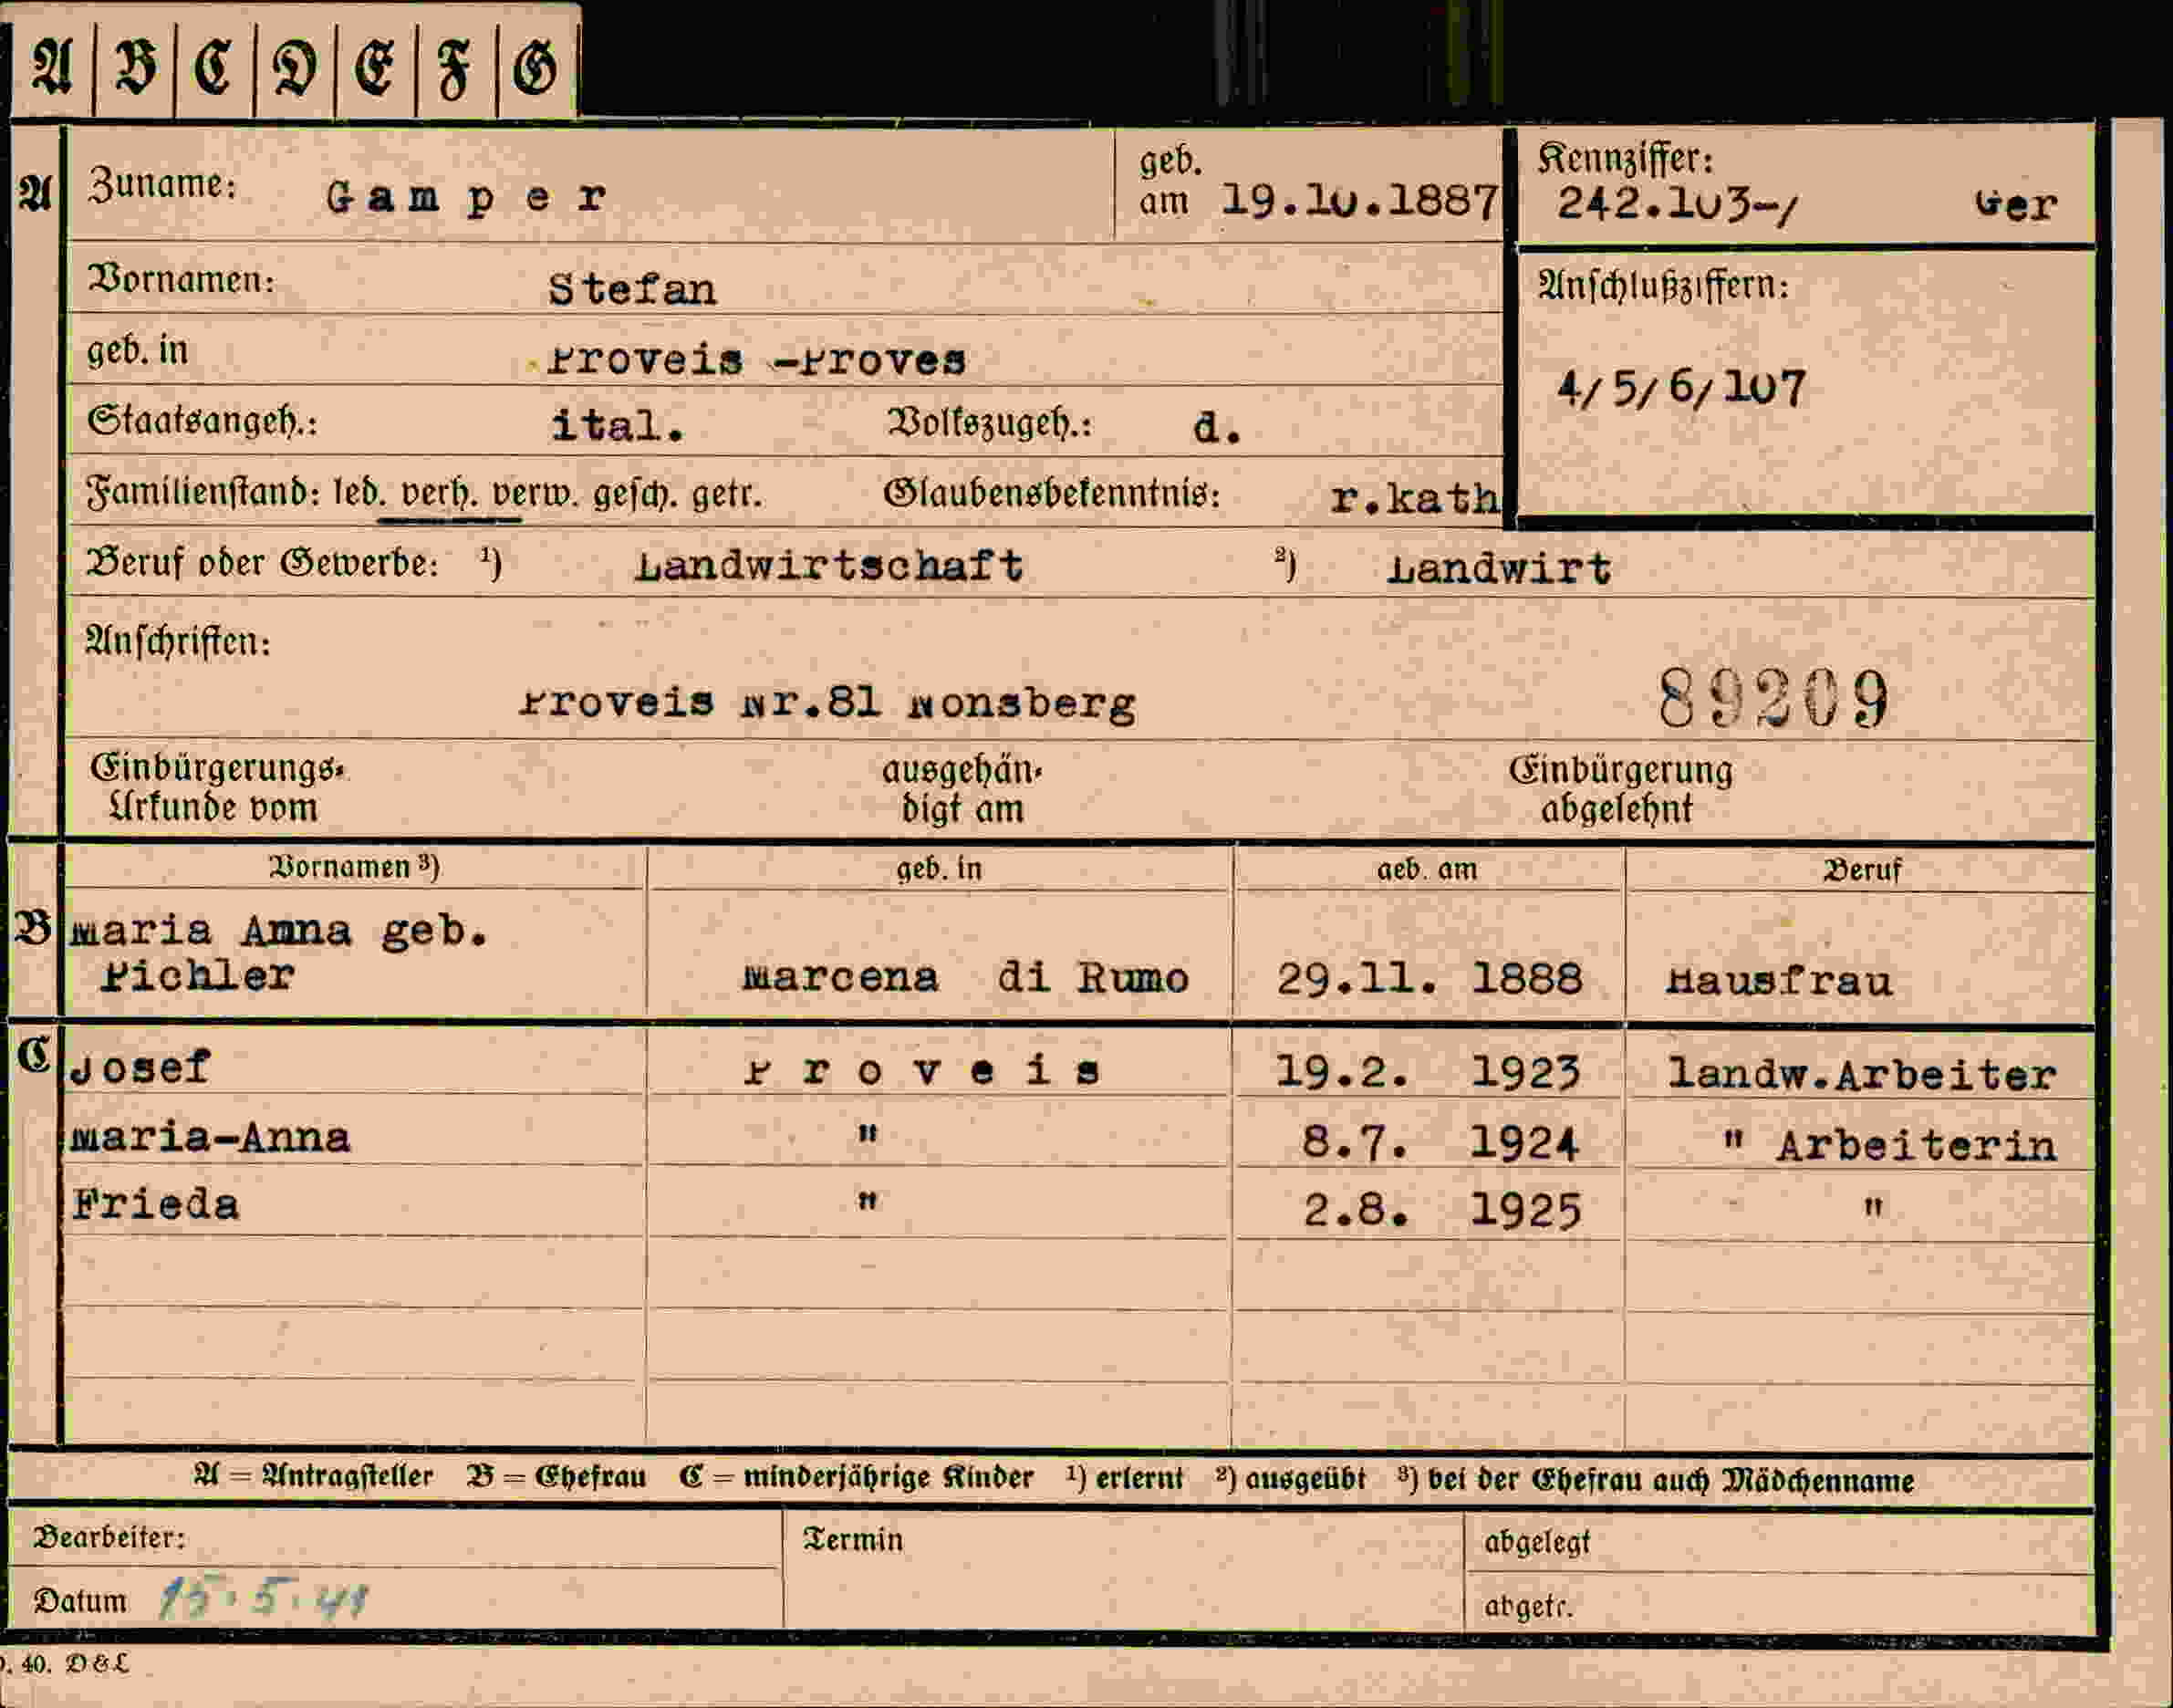 A B C D E F G
A Zuname: Gamper geb. am 19.10.1887 Kennziffer: 242.103-/ Ger
Vornamen: Stefan Anschlußziffern:
geb. in Proveis -Proves 4/5/6/107
Staatsangeh.: ital. Volkszugeh.: d.
Familienstand: led. verh. verw. gesch. getr. Glaubensbekenntnis: r.kath
Beruf oder Gewerbe: 1) Landwirtschaft 2) Landwirt
Anschriften:
Proveis Nr.81 Nonsberg 89209
Einbürgerungs- ausgehän- Einbürgerung
Urkunde vom digt am abgelehnt
Vornamen 3) geb. in geb. am Beruf
B Maria Anna geb.
Pichler Marcena di Rumo 29.11. 1888 Hausfrau
C Josef Proveis 19.2. 1923 landw.Arbeiter
Maria-Anna " 8.7. 1924 " Arbeiterin
Frieda " 2.8. 1925 "
A = Antragsteller B = Ehefrau C = minderjährige Kinder 1) erlernt 2) ausgeübt 3) bei der Ehefrau auch Mädchenname
Bearbeiter: Termin abgelegt
Datum 15.5.41 abgetr.
40. D & L